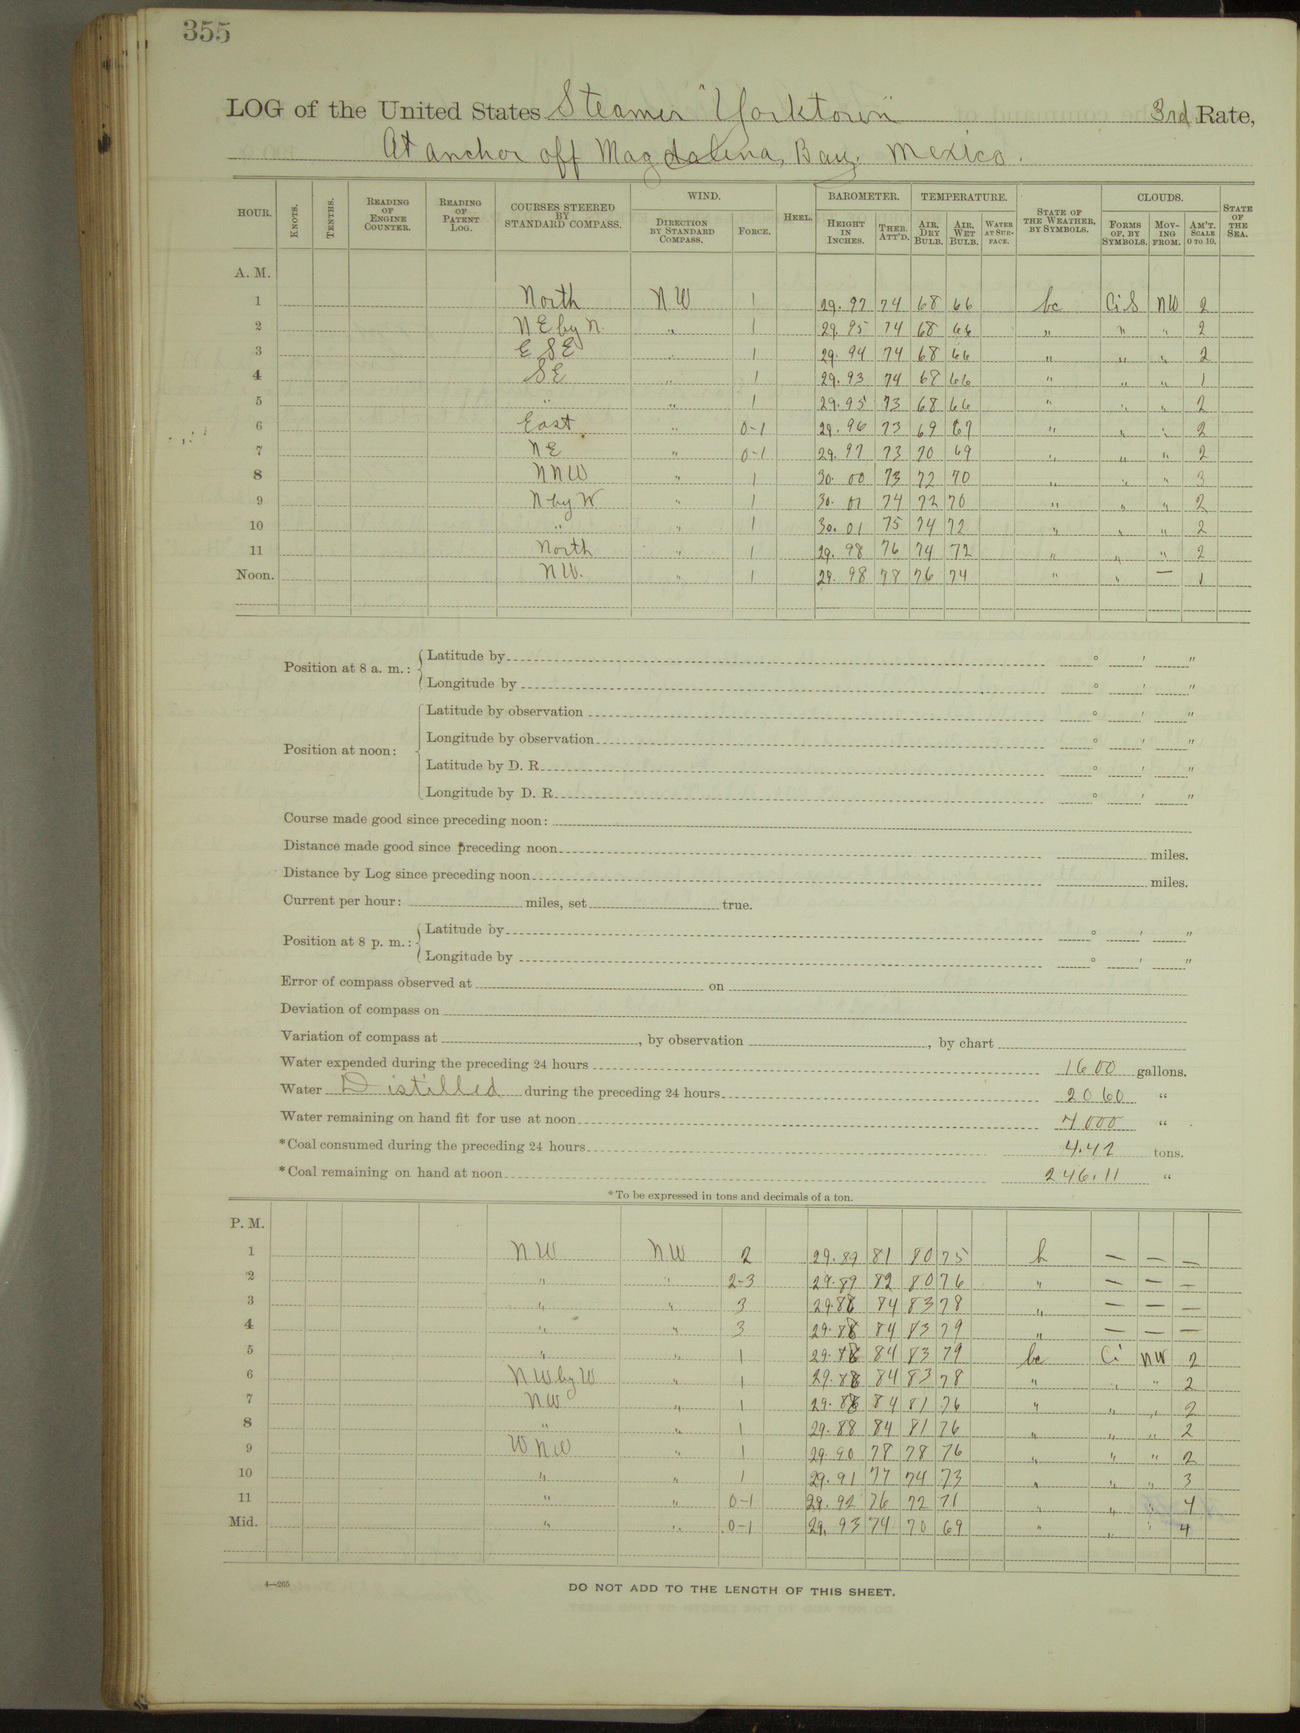 355
LOG of the United States Steamer "Yorktown" 3rd Rate,
At anchor off Magdalena Bay, Mexico.
HOUR. KNOTS. TENTHS. READING OF ENGINE COUNTER. READING OF PATENT LOG. COURSES STEERED BY STANDARD COMPASS. WIND. DIRECTION BY STANDARD COMPASS. FORCE. HEEL. BAROMETER. HEIGHT IN INCHES. THER. ATT'D. TEMPERATURE. AIR, DRY BULB. AIR, WET BULB. WATER AT SURFACE. STATE OF THE WEATHER, BY SYMBOLS. CLOUDS. FORMS OF, BY SYMBOLS. MOVING FROM. AM'T. SCALE 0 TO 10. STATE OF THE SEA.
A. M.
1 North NW 1 29.97 74 68 66 bc Ci S NW 2
2 NE by N. " 1 29.95 74 68 66 " " " 2
3 ESE " 1 29.94 74 68 66 " " " 2
4 SE " 1 29.93 74 68 66 " " " 1
5 " " 1 29.95 73 68 66 " " " 2
6 East " 0-1 29.96 73 69 67 " " " 2
7 NE " 0-1 29.97 73 70 69 " " " 2
8 NNW " 1 30.00 73 72 70 " " " 3
9 N by W " 1 30.01 74 72 70 " " " 2
10 " " 1 30.01 75 74 72 " " " 2
11 North " 1 29.98 76 74 72 " " " 2
Noon. NW. " 1 29.98 78 76 74 " " — 1
Position at 8 a. m.: Latitude by ° ′ ″
Longitude by ° ′ ″
Position at noon: Latitude by observation ° ′ ″
Longitude by observation ° ′ ″
Latitude by D. R. ° ′ ″
Longitude by D. R. ° ′ ″
Course made good since preceding noon:
Distance made good since preceding noon miles.
Distance by Log since preceding noon miles.
Current per hour: miles, set true.
Position at 8 p. m.: Latitude by ° ′ ″
Longitude by ° ′ ″
Error of compass observed at on
Deviation of compass on
Variation of compass at , by observation , by chart
Water expended during the preceding 24 hours 1600 gallons.
Water Distilled during the preceding 24 hours 2060 "
Water remaining on hand fit for use at noon 7000 "
*Coal consumed during the preceding 24 hours 4.42 tons.
*Coal remaining on hand at noon 246.11 "
*To be expressed in tons and decimals of a ton.
P. M.
1 NW NW 2 29.89 81 80 75 b — — —
2 " " 2-3 29.89 82 80 76 " — — —
3 " " 3 29.88 84 83 78 " — — —
4 " " 3 29.88 84 83 79 " — — —
5 " " 1 29.88 84 83 79 bc Ci NW 2
6 NW by W " 1 29.88 84 83 78 " " " 2
7 NW " 1 29.88 84 81 76 " " " 2
8 " " 1 29.88 84 81 76 " " " 2
9 WNW " 1 29.90 78 78 76 " " " 2
10 " " 1 29.91 77 74 73 " " " 3
11 " " 0-1 29.92 76 72 71 " " " 4
Mid. " " 0-1 29.93 74 70 69 " " " 4
4—265
DO NOT ADD TO THE LENGTH OF THIS SHEET.